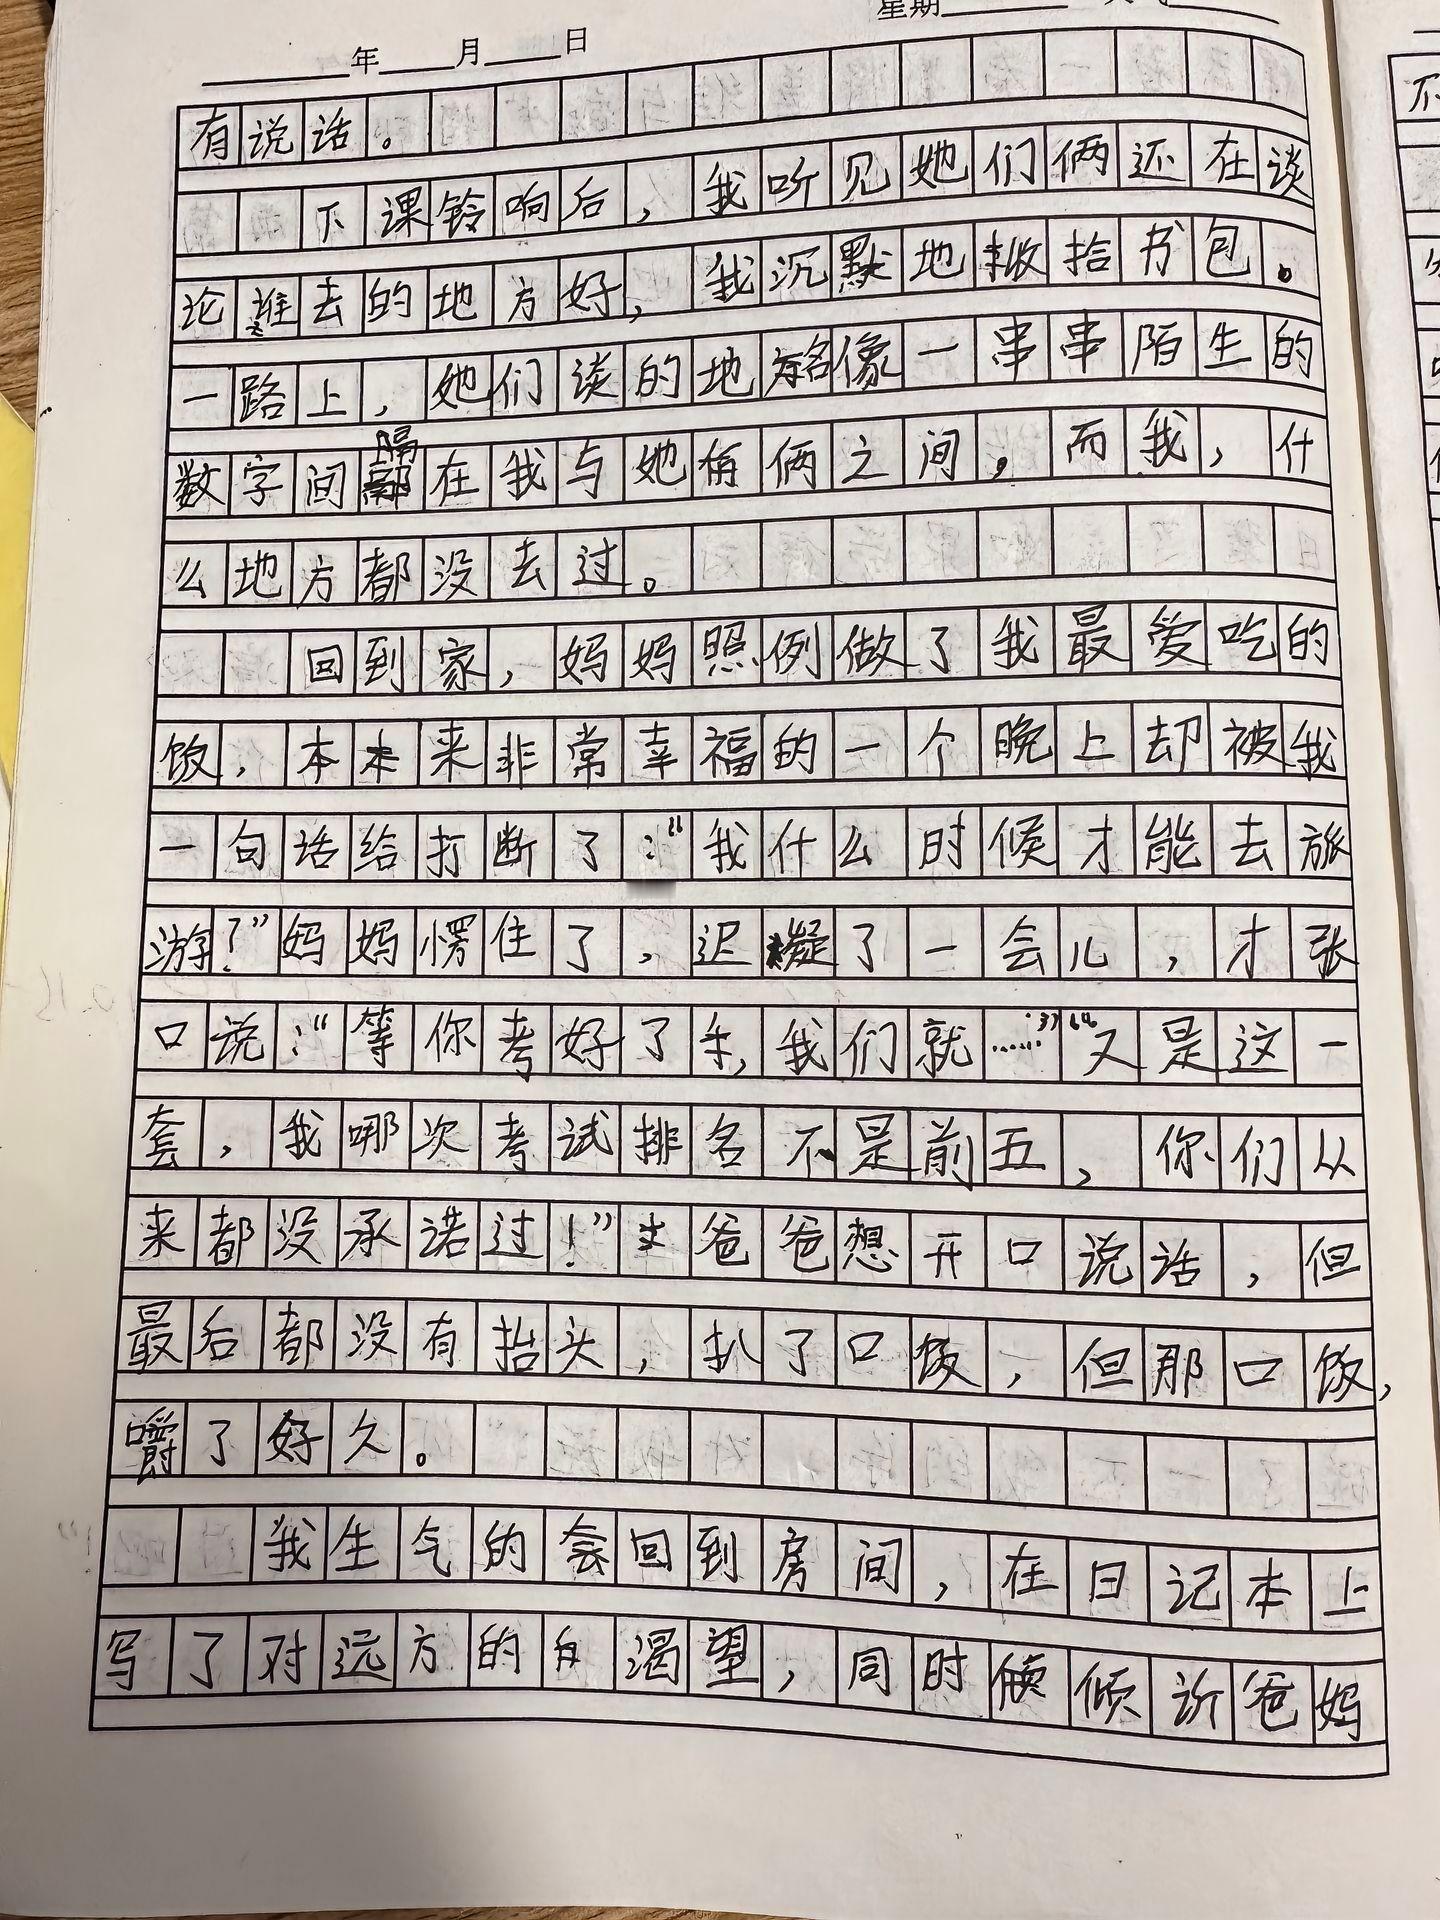 星期
年 月 日
有说话。
下课铃响后，我听见她们俩还在谈
论谁去的地方好，我沉默地收拾书包。
一路上，她们谈的地名像一串串陌生的
数字间隔在我与她俩之间，而我，什
么地方都没去过。
回到家，妈妈照例做了我最爱吃的
饭，本来非常幸福的一个晚上却被我
一句话给打断了：“我什么时候才能去旅
游？”妈妈愣住了，迟疑了一会儿，才张
口说：“等你考好了，我们就……”“又是这一
套，我哪次考试排名不是前五，你们从
来都没承诺过！”爸爸想开口说话，但
最后都没有抬头，扒了口饭，但那口饭，
嚼了好久。
我生气的回到房间，在日记本上
写了对远方的渴望，同时倾诉爸妈